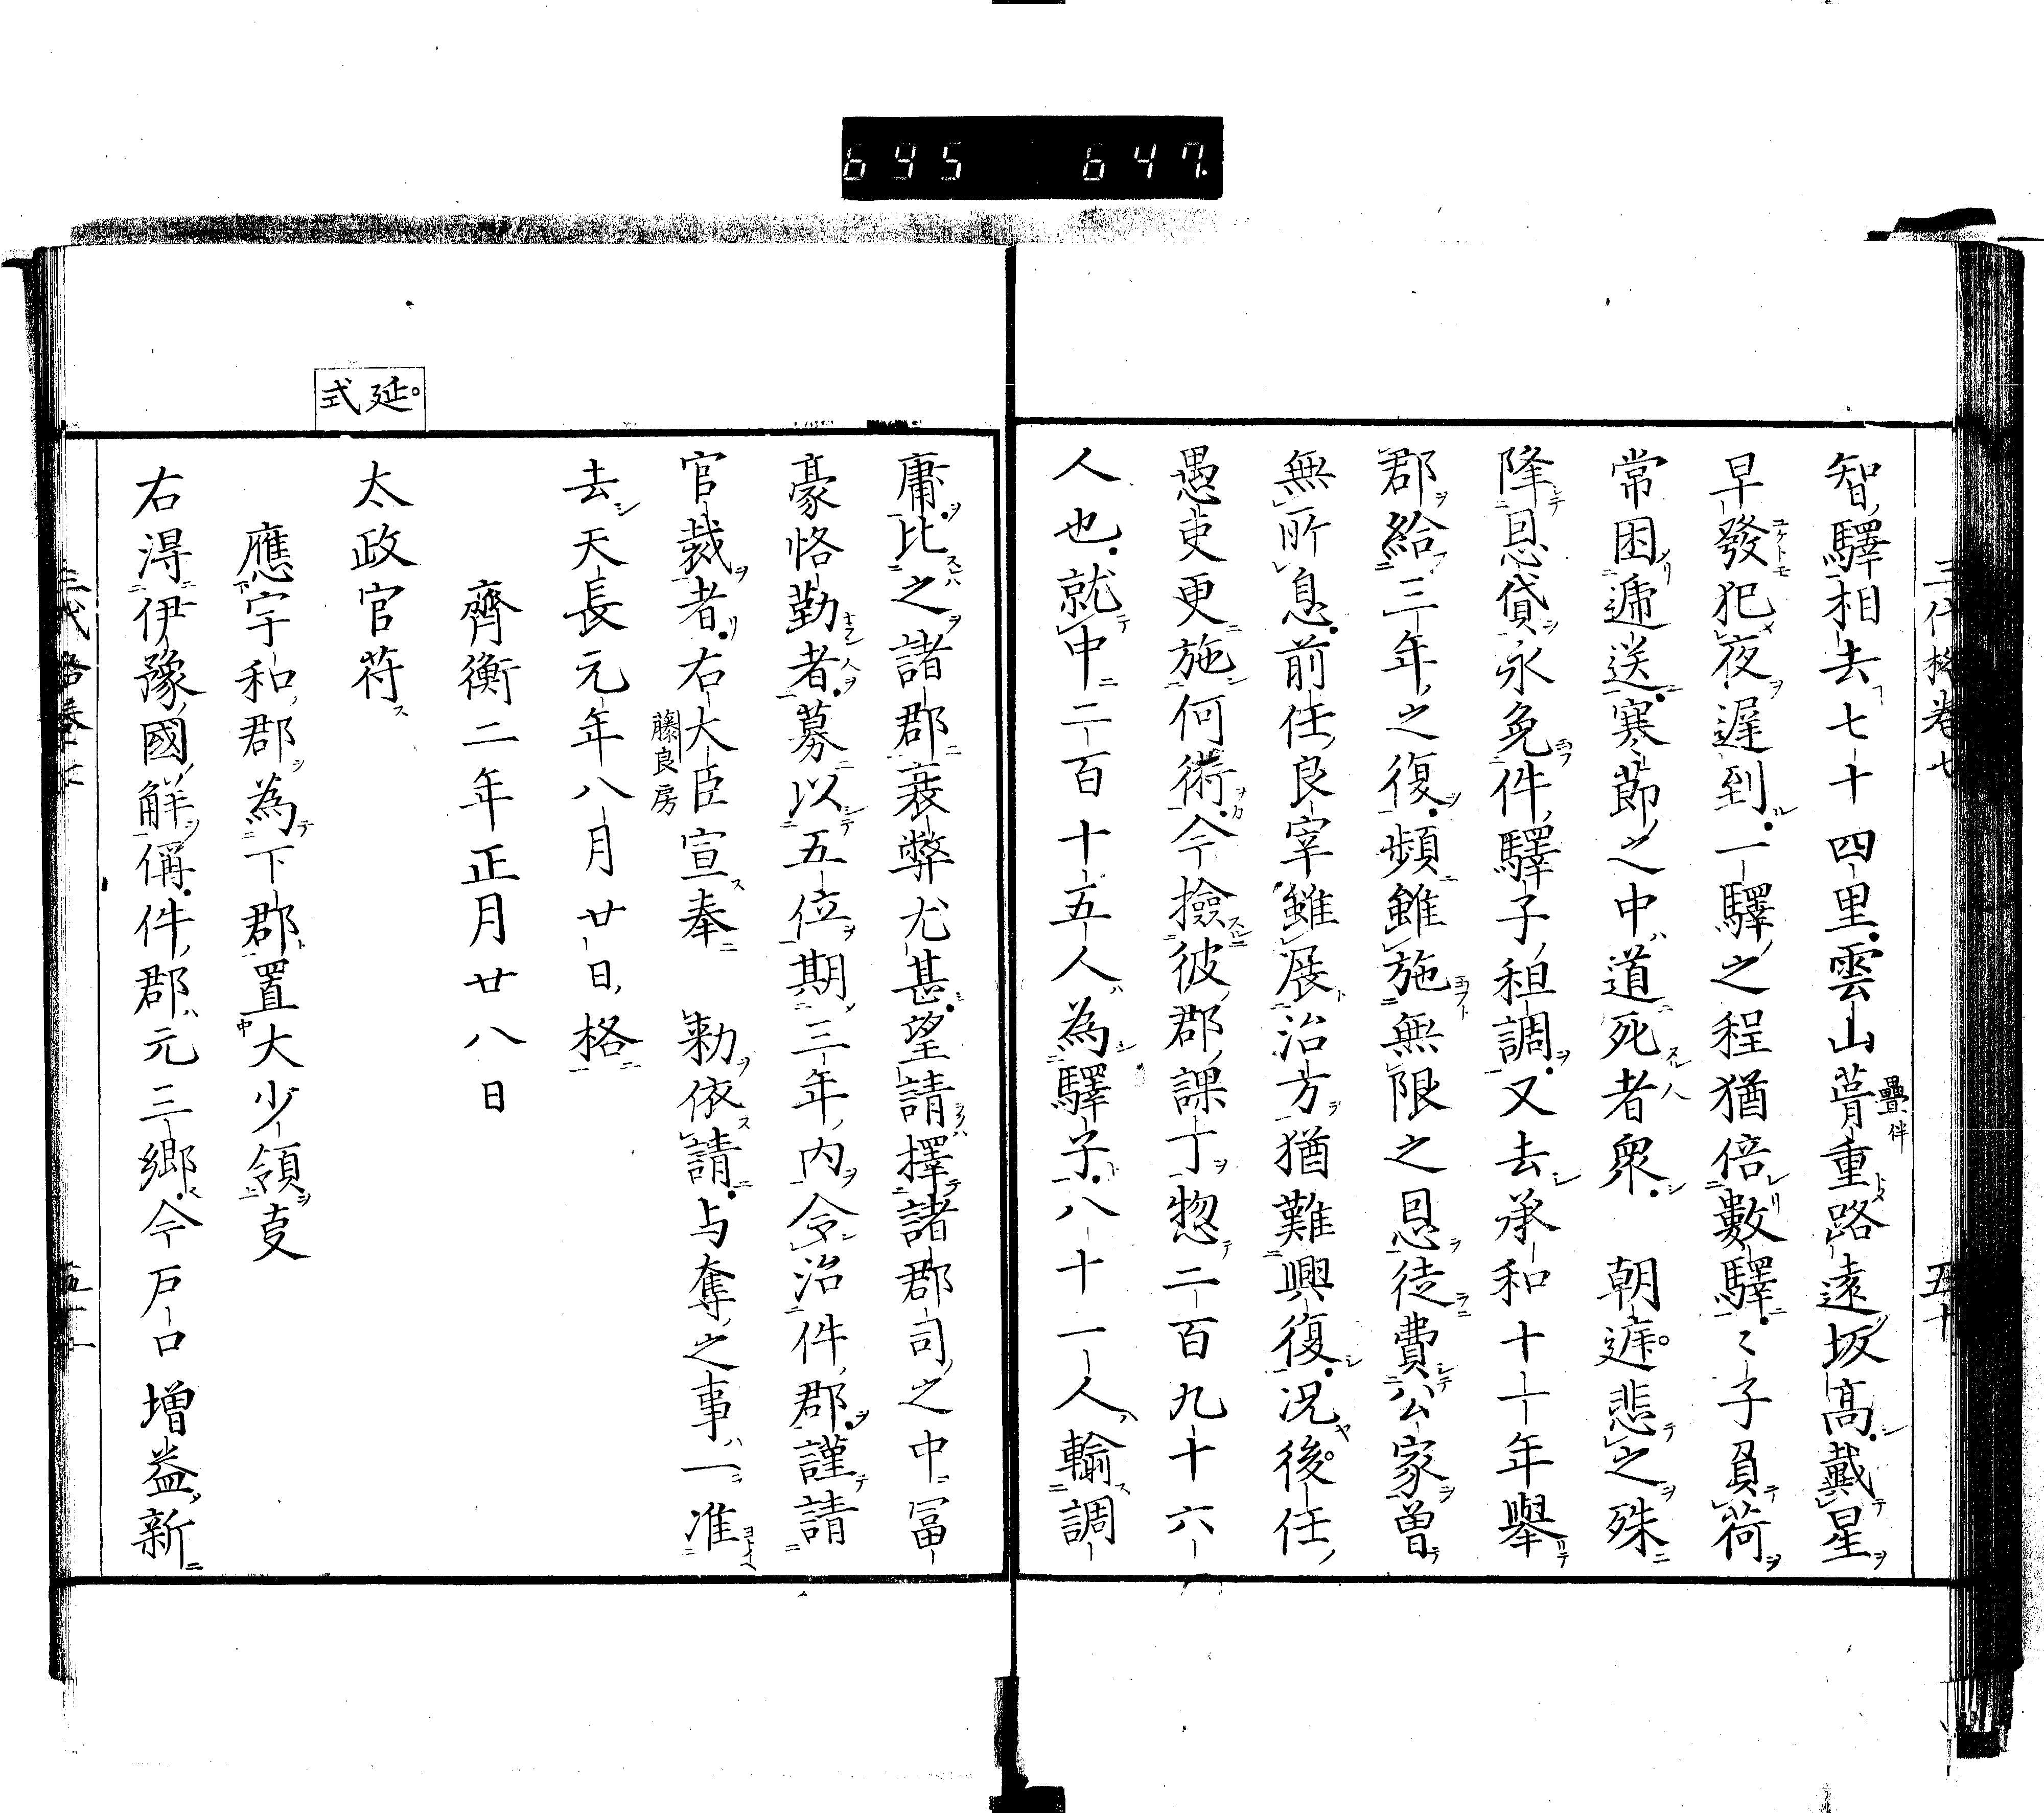 695 647.
三代格卷七 五十
智驛相去七十四里雲山䔿重路遠坂髙戴星
疊 伴
早發犯夜遲到一驛之程猶倍數驛〻子負荷
常困遞送寒節之中道死者衆 朝遲悲之殊
降恩貸永免件驛子租調又去承和十一年舉
郡給三年之復頻雖施無限之恩徒費公家曽
無所息前任良宰雖展治方猶難興復况後任
愚吏更施何術今撿彼郡課丁惣二百九十六
人也就中二百十五人為驛子八十一人輸調
庸比之諸郡衰弊尤甚望請擇諸郡司之中冨
豪恪勤者募以五位期三年内令治件郡謹請
官裁者右大臣宣奉 勅依請与奪之事一准
藤良房
去天長元年八月廿日格
齊衡二年正月廿八日
延式
太政官符
應宇和郡為下郡置大少領㕝
右淂伊豫國解偁件郡元三郷今戸口増益新
三代格卷七